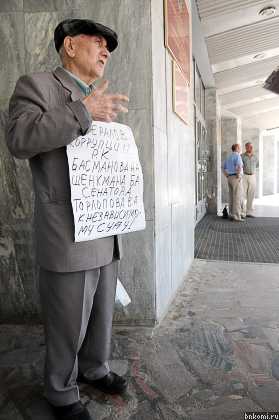 ФЕРАЛОВ
КОРРУПЦИИ
Р.К
БАСМАНОВА НА
ЩЕНКМАНА БА
СЕНАТОРА
ТОРЛОПОВА ВА
К НЕЗАВИСИМО-
МУ СУДУ!
bnkomi.ru